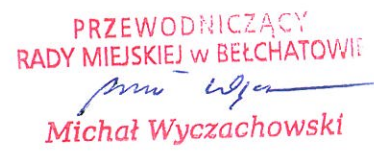 PRZEWODNICZĄCY
RADY MIEJSKIEJ w BEŁCHATOWIE
Michał Wyczachowski